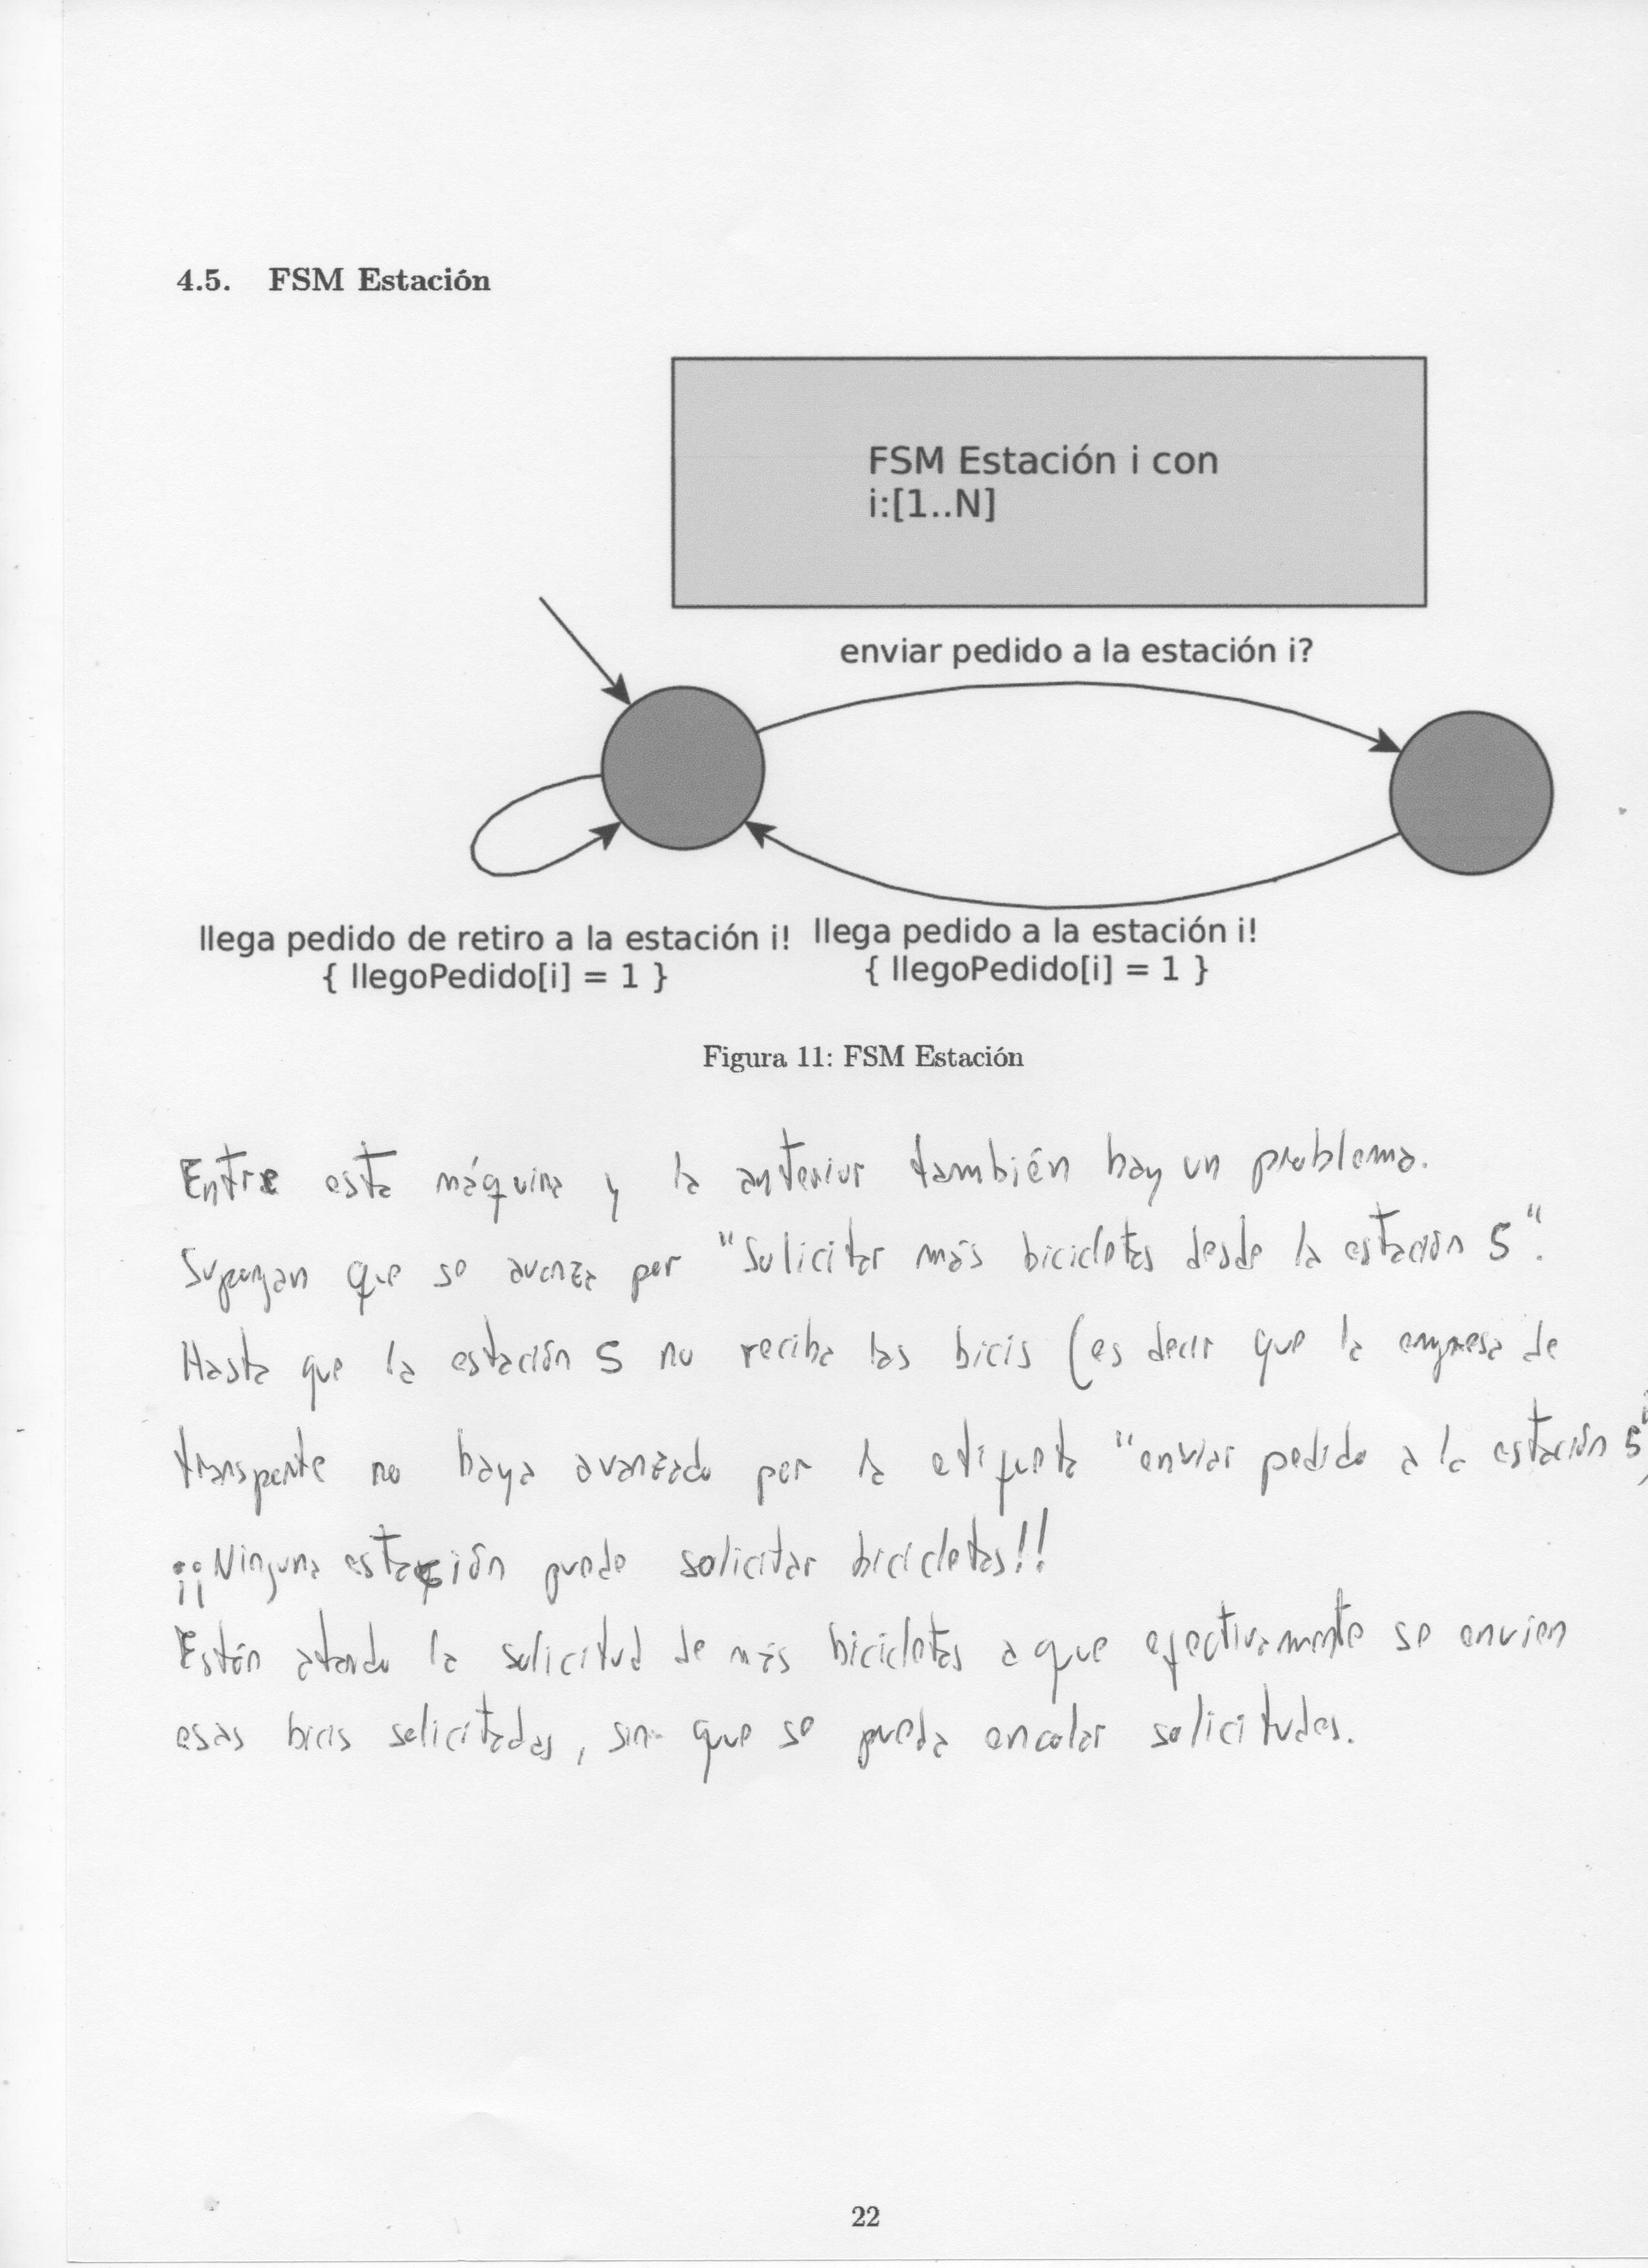 4.5. FSM Estación
FSM Estación i con
i:[1..N]
enviar pedido a la estación i?
llega pedido de retiro a la estación i!
{ llegoPedido[i] = 1 }
llega pedido a la estación i!
{ llegoPedido[i] = 1 }
Figura 11: FSM Estación
Entre esta máquina y la anterior también hay un problema.
Supongan que se avanza por "Solicitar más bicicletas desde la estación 5".
Hasta que la estación 5 no reciba las bicis (es decir que la empresa de
transporte no haya avanzado por la etiqueta "enviar pedido a la estación 5"
¡¡Ninguna estación puede solicitar bicicletas!!
Están atando la solicitud de más bicicletas a que efectivamente se envien
esas bicis solicitadas, sin que se pueda encolar solicitudes.
22